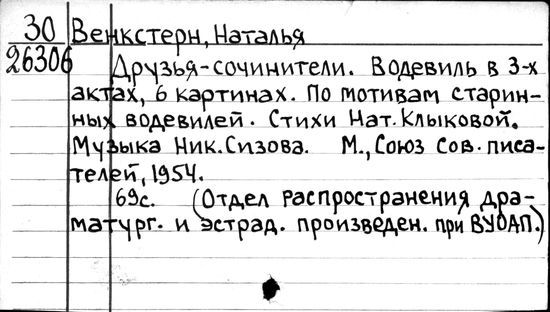 30 Венкстерн, Наталья
26306 Друзья-сочинители. Водевиль в 3-х
актах, 6 картинах. По мотивам старин-
ных водевилей. Стихи Нат. Клыковой.
Музыка Ник. Сизова. М., Союз сов. писа-
телей, 1954.
69с. (Отдел распространения дра-
матург. и эстрад. произведен. при ВУОАП.)